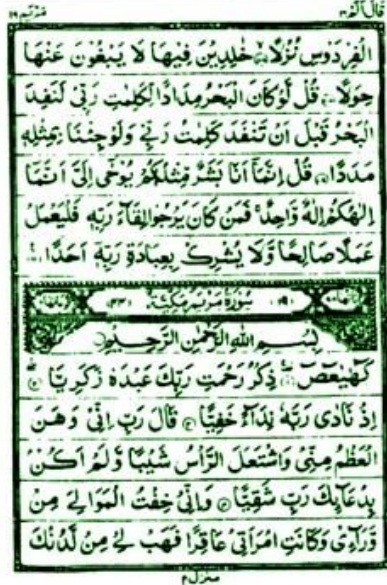 قال الم ١٦ مريم ١٩
الْفِرْدَوْسِ نُزُلًا ۙ خٰلِدِيْنَ فِيْهَا لَا يَبْغُوْنَ عَنْهَا
حِوَلًا ۞ قُلْ لَّوْ كَانَ الْبَحْرُ مِدَادًا لِّكَلِمٰتِ رَبِّيْ لَنَفِدَ
الْبَحْرُ قَبْلَ اَنْ تَنْفَدَ كَلِمٰتُ رَبِّيْ وَلَوْ جِئْنَا بِمِثْلِهٖ
مَدَدًا ۞ قُلْ اِنَّمَاۤ اَنَا بَشَرٌ مِّثْلُكُمْ يُوْحٰۤى اِلَيَّ اَنَّمَاۤ
اِلٰهُكُمْ اِلٰهٌ وَّاحِدٌ ۚ فَمَنْ كَانَ يَرْجُوْا لِقَآءَ رَبِّهٖ فَلْيَعْمَلْ
عَمَلًا صَالِحًا وَّلَا يُشْرِكْ بِعِبَادَةِ رَبِّهٖۤ اَحَدًا ۞
(١٩) سُوْرَةُ مَرْيَمَ مَكِّيَّةٌ (٤٤)
بِسْمِ اللّٰهِ الرَّحْمٰنِ الرَّحِيْمِ
كٓهٰيٰعٓصٓ ۞ ذِكْرُ رَحْمَتِ رَبِّكَ عَبْدَهٗ زَكَرِيَّا ۞
اِذْ نَادٰى رَبَّهٗ نِدَآءً خَفِيًّا ۞ قَالَ رَبِّ اِنِّيْ وَهَنَ
الْعَظْمُ مِنِّيْ وَاشْتَعَلَ الرَّاْسُ شَيْبًا وَّلَمْ اَكُنْۢ
بِدُعَآىِٕكَ رَبِّ شَقِيًّا ۞ وَاِنِّيْ خِفْتُ الْمَوَالِيَ مِنْ
وَّرَآءِيْ وَكَانَتِ امْرَاَتِيْ عَاقِرًا فَهَبْ لِيْ مِنْ لَّدُنْكَ
منزل ٤